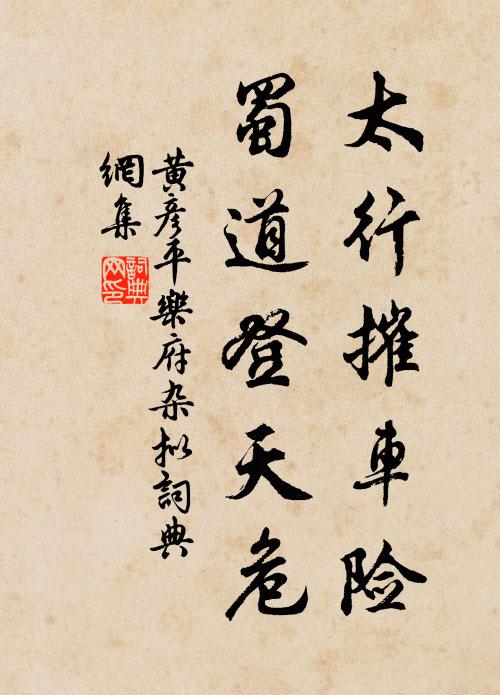 太行摧车险
蜀道登天危
黄彦平樂府杂拟詞典
網集
詞典網印